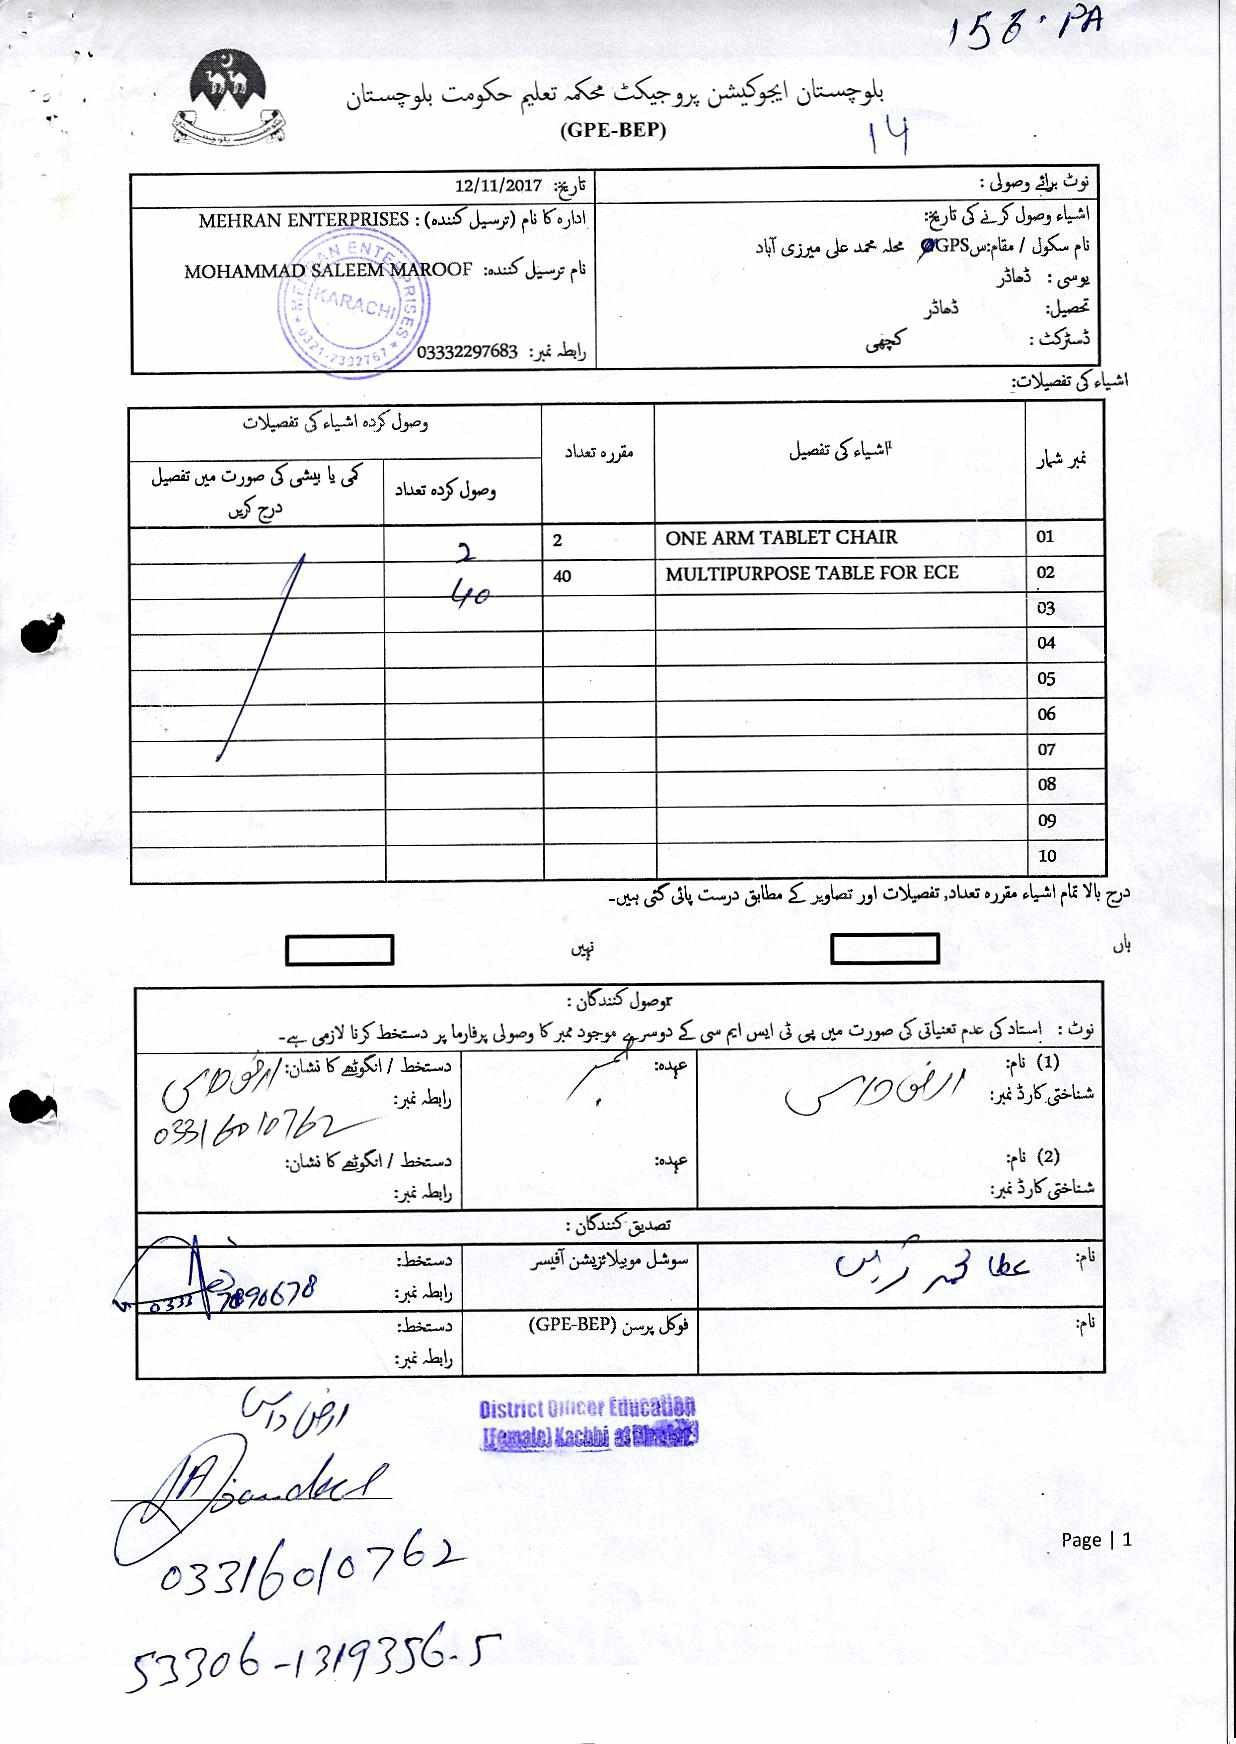 156. PA
بلوچستان ایجوکیشن پروجیکٹ محکمہ تعلیم حکومت بلوچستان
(GPE-BEP)
14
نوٹ برائے وصولی :
تاریخ: 12/11/2017
اشیاء وصول کرنے کی تاریخ:
نام سکول / مقام:س GPS محلہ محمد علی میرزی آباد
یوسی : ڈھاڈر
تحصیل: ڈھاڈر
ڈسٹرکٹ : کچھی
ادارہ کا نام (ترسیل کنندہ) : MEHRAN ENTERPRISES
نام ترسیل کنندہ: MOHAMMAD SALEEM MAROOF
رابطہ نمبر: 03332297683
MEHRAN ENTERPRISES
KARACHI
0321-2302767
اشیاء کی تفصیلات:
نمبر شمار اشیاء کی تفصیل مقررہ تعداد وصول کردہ اشیاء کی تفصیلات
وصول کردہ تعداد کمی یا بیشی کی صورت میں تفصیل درج کریں
01 ONE ARM TABLET CHAIR 2 2
02 MULTIPURPOSE TABLE FOR ECE 40 40
03
04
05
06
07
08
09
10
درج بالا تمام اشیاء مقررہ تعداد, تفصیلات اور تصاویر کے مطابق درست پائی گئی ہیں۔
ہاں نہیں
وصول کنندگان :
نوٹ : استاد کی عدم تعیناتی کی صورت میں پی ٹی ایس ایم سی کے دوسرے موجود ممبر کا وصولی پرفارما پر دستخط کرنا لازمی ہے۔
(1) نام: عہدہ: دستخط / انگوٹھے کا نشان:
شناختی کارڈ نمبر: رابطہ نمبر:
03316010762
(2) نام: عہدہ: دستخط / انگوٹھے کا نشان:
شناختی کارڈ نمبر: رابطہ نمبر:
تصدیق کنندگان :
نام: عطا محمد سوشل موبیلائزیشن آفیسر دستخط:
رابطہ نمبر: 0333 7890678
نام: فوکل پرسن (GPE-BEP) دستخط:
رابطہ نمبر:
District Officer Education
(Female) Kachhi at Dhadar
03316010762
53306-1319356-5
Page | 1